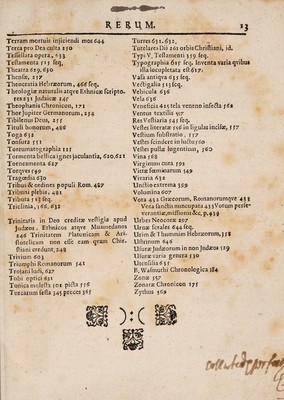 RERUM.
13
Terram mortuis iniiciendi mos 644
Terra pro Dea culta 150
Tessellata opera, 633
Testamenta 715 seq.
Theatra 629, 630
Thensæ, 257
Theocratia Hebræorum, 466 seq.
Theologiæ naturalis atque Ethnicæ
tes 231 Judaicæ 147
Theophania Chronicon, 171
Thor Jupiter Germanorum, 254
Tibilenus Deus, 255
Tituli honorum, 486
Toga 623
Tonsura 551
Toreumatographia 121
Tormenta bellica ignes jaculantia, 620, 621
Torneamenta 627
Torques 549
Tragœdia 630
Tribus & ordines populi Rom. 487
Tribuni plebis, 481
Tributa 518 seq.
Triclinia, 566, 632
Trinitatis in Deo creditæ vestigia apud
Judæos, Ethnicos atque Muhmedanos
146 Trinitatem Platonicam & Ari-
stotelicam non esse eam quam Chri-
stiani credunt, 240
Trivium 603
Triumphi Romanorum 541
Trotani lusi, 627
Tubi optici 631
Tunica molesta 102 picta 556
Turcarum festa 345 preces 365
Turres 631. 632.
Tutelares Dii 201 orbis Christiani, id.
Typi V. Testamenti 359 seq.
Typographia 617 seq. Inventa varia quibus
illa locupletata est 617.
Vasa antiqua 635 seq.
Vectigalia 513 seq.
Vehicula 636
Vela 636
Veneficii 425 tela veneno infecta 562
Ventus textilis 557
Res Vestiaria 545 seq.
Vestes literatæ 556 in singulas incisæ, 557
Vestium substratio, 557
Vestes scindere in luctu 560
Vestes pullæ lugentium, 560
Vina 568
Virginum cura 593
Vittæ fœminarum 549
Viraria 632
Unctio extrema 359
Volumina 607
Vota 432 Græcorum, Romanorumque 433
Vera sancti nuncupatis 433 Votum perse-
verantiæ, missionis &c. p. 439
Urbes Neocoræ 297
Urnæ ferales 644 seq.
Urim & Thummim Hebræorum, 358
Uthrinum 646
Usuræ Judæorum in non Judæos 519
Usuræ varia genera 530
Utensilia 635
B. Wasmuthi Chronologica 184
Zonæ 557
Zonaræ Chronicon 175
Zythus 569